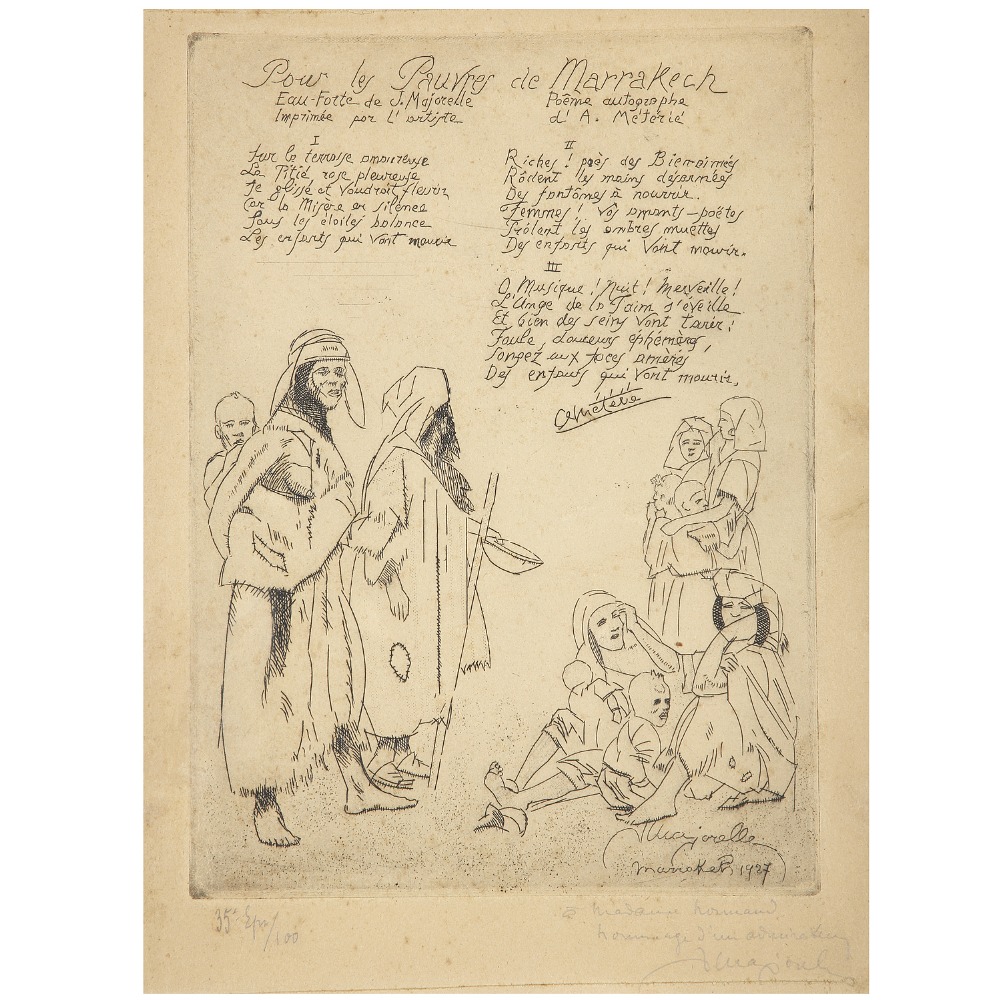 Pour les Pauvres de Marrakech
Eau-Forte de J. Majorelle
Imprimée par l'artiste
Poême autographe
d'A. Métérié
I
Sur la terrasse amoureuse
La Pitié rose pleureuse
Se glisse et voudrait fleurir
Car la Misère en silence
Sous les étoiles balance
Les enfants qui vont mourir
II
Riches ! près des Bien-aimés
Rôdent les mains désarmées
Des fantômes à nourrir.
Femmes ! Vos amants-poètes
Frôlent les ombres muettes
Des enfants qui vont mourir.
III
O, Musique ! Nuit ! Merveille !
L'Ange de la Faim s'éveille
Et bien des seins vont tarir ;
Foule, douceurs éphémères,
Songez aux faces amères
Des enfants qui vont mourir.
a métérié
J Majorelle
Marrakech 1927
35e Epr/100
à Madame Normand
hommage d'un admirateur
J Majorelle